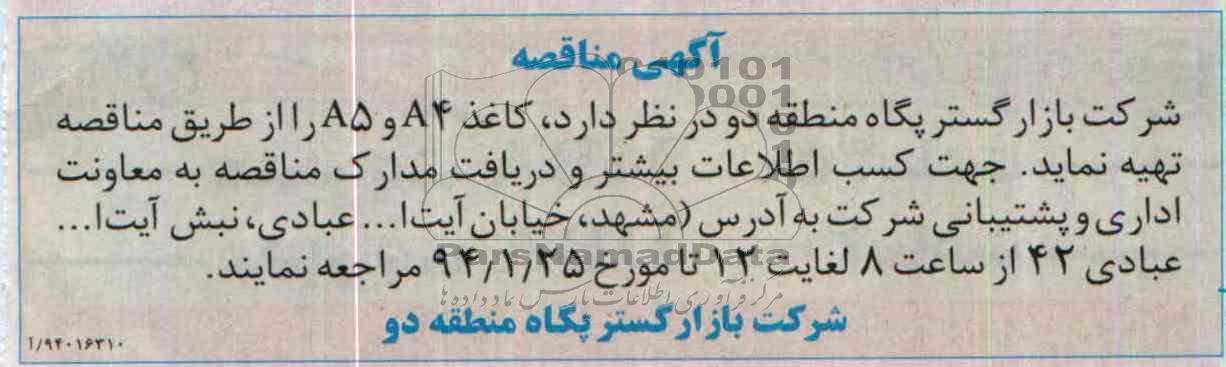 آگهی مناقصه
شرکت بازار گستر پگاه منطقه دو در نظر دارد، کاغذ A۴ و A۵ را از طریق مناقصه
تهیه نماید. جهت کسب اطلاعات بیشتر و دریافت مدارک مناقصه به معاونت
اداری و پشتیبانی شرکت به آدرس (مشهد، خیابان آیت‌ا... عبادی، نبش آیت‌ا...
عبادی ۴۲ از ساعت ۸ لغایت ۱۲ تا مورخ ۹۴/۱/۲۵ مراجعه نمایند.
ParsNamadData
مرکز فرآوری اطلاعات پارس نماد داده ها
شرکت بازار گستر پگاه منطقه دو
۹۴۰۱۶۳۱۰/آ